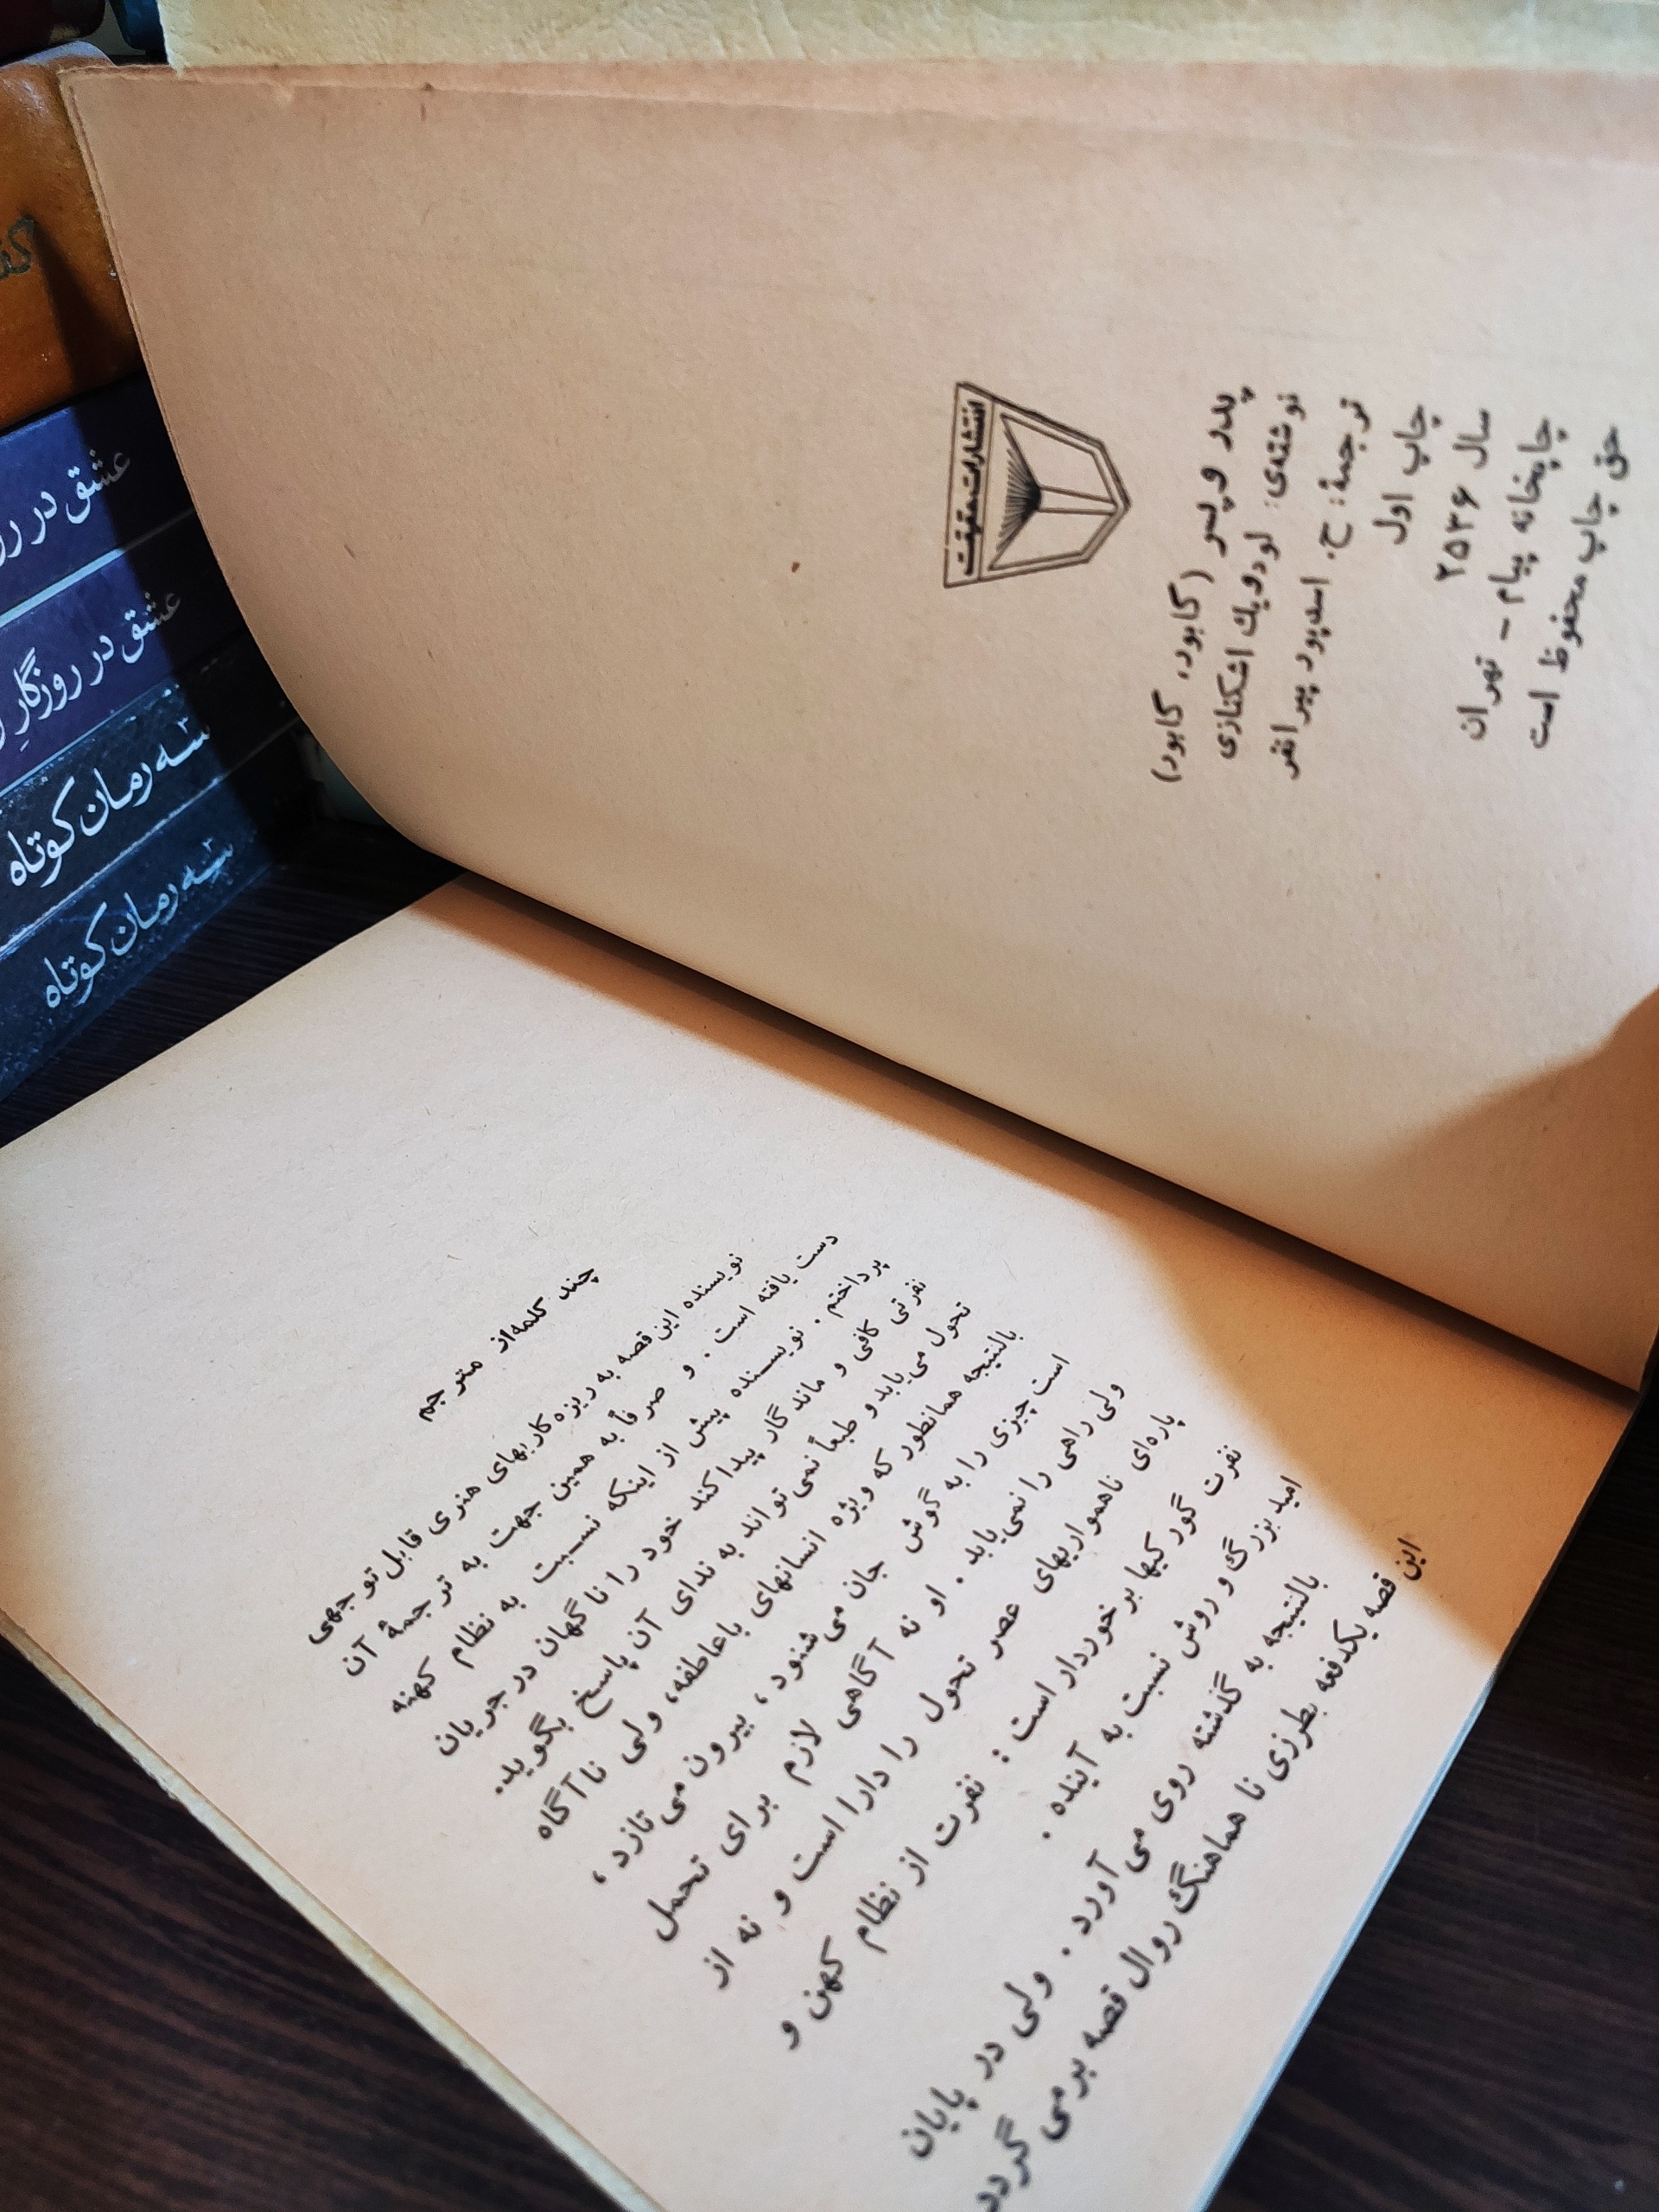 انتشارات حقیقت
پدر و پسر (کابود، کابود)
نوشته‌ی: لودویك اشکنازی
ترجمهٔ: ح. اسدپور پیرانفر
چاپ اول
سال ۲۵۳۶
چاپخانه پیام - تهران
حق چاپ محفوظ است
چند کلمه‌از مترجم
نویسنده این قصه به ریزه‌کاریهای هنری قابل توجهی
دست یافته است . و صرفاً به همین جهت به ترجمهٔ آن
پرداختم . نویسنده پیش از اینکه نسبت به نظام کهنه
نفرتی کافی و ماندگار پیدا کند خود را ناگهان در جریان
تحول می‌یابد و طبعاً نمی‌تواند به ندای آن پاسخ بگوید.
بالنتیجه همانطور که ویژه انسانهای باعاطفه، ولی ناآگاه
است چیزی را به گوش جان می‌شنود، بیرون می‌تازد،
ولی راهی را نمی‌یابد . او نه آگاهی لازم برای تحمل
پاره‌ای ناهمواریهای عصر تحول را دارا است و نه از
نفرت گورکیها برخوردار است : نفرت از نظام کهن و
امید بزرگ و روش نسبت به آینده .
بالنتیجه به گذشته روی می‌آورد . ولی در پایان
این قصه یکدفعه بطرزی نا هماهنگ روال قصه برمی گردد
عشق در
عشق در روزگارِ
سه رمان کوتاه
۳
سه رمان کوتاه
۳